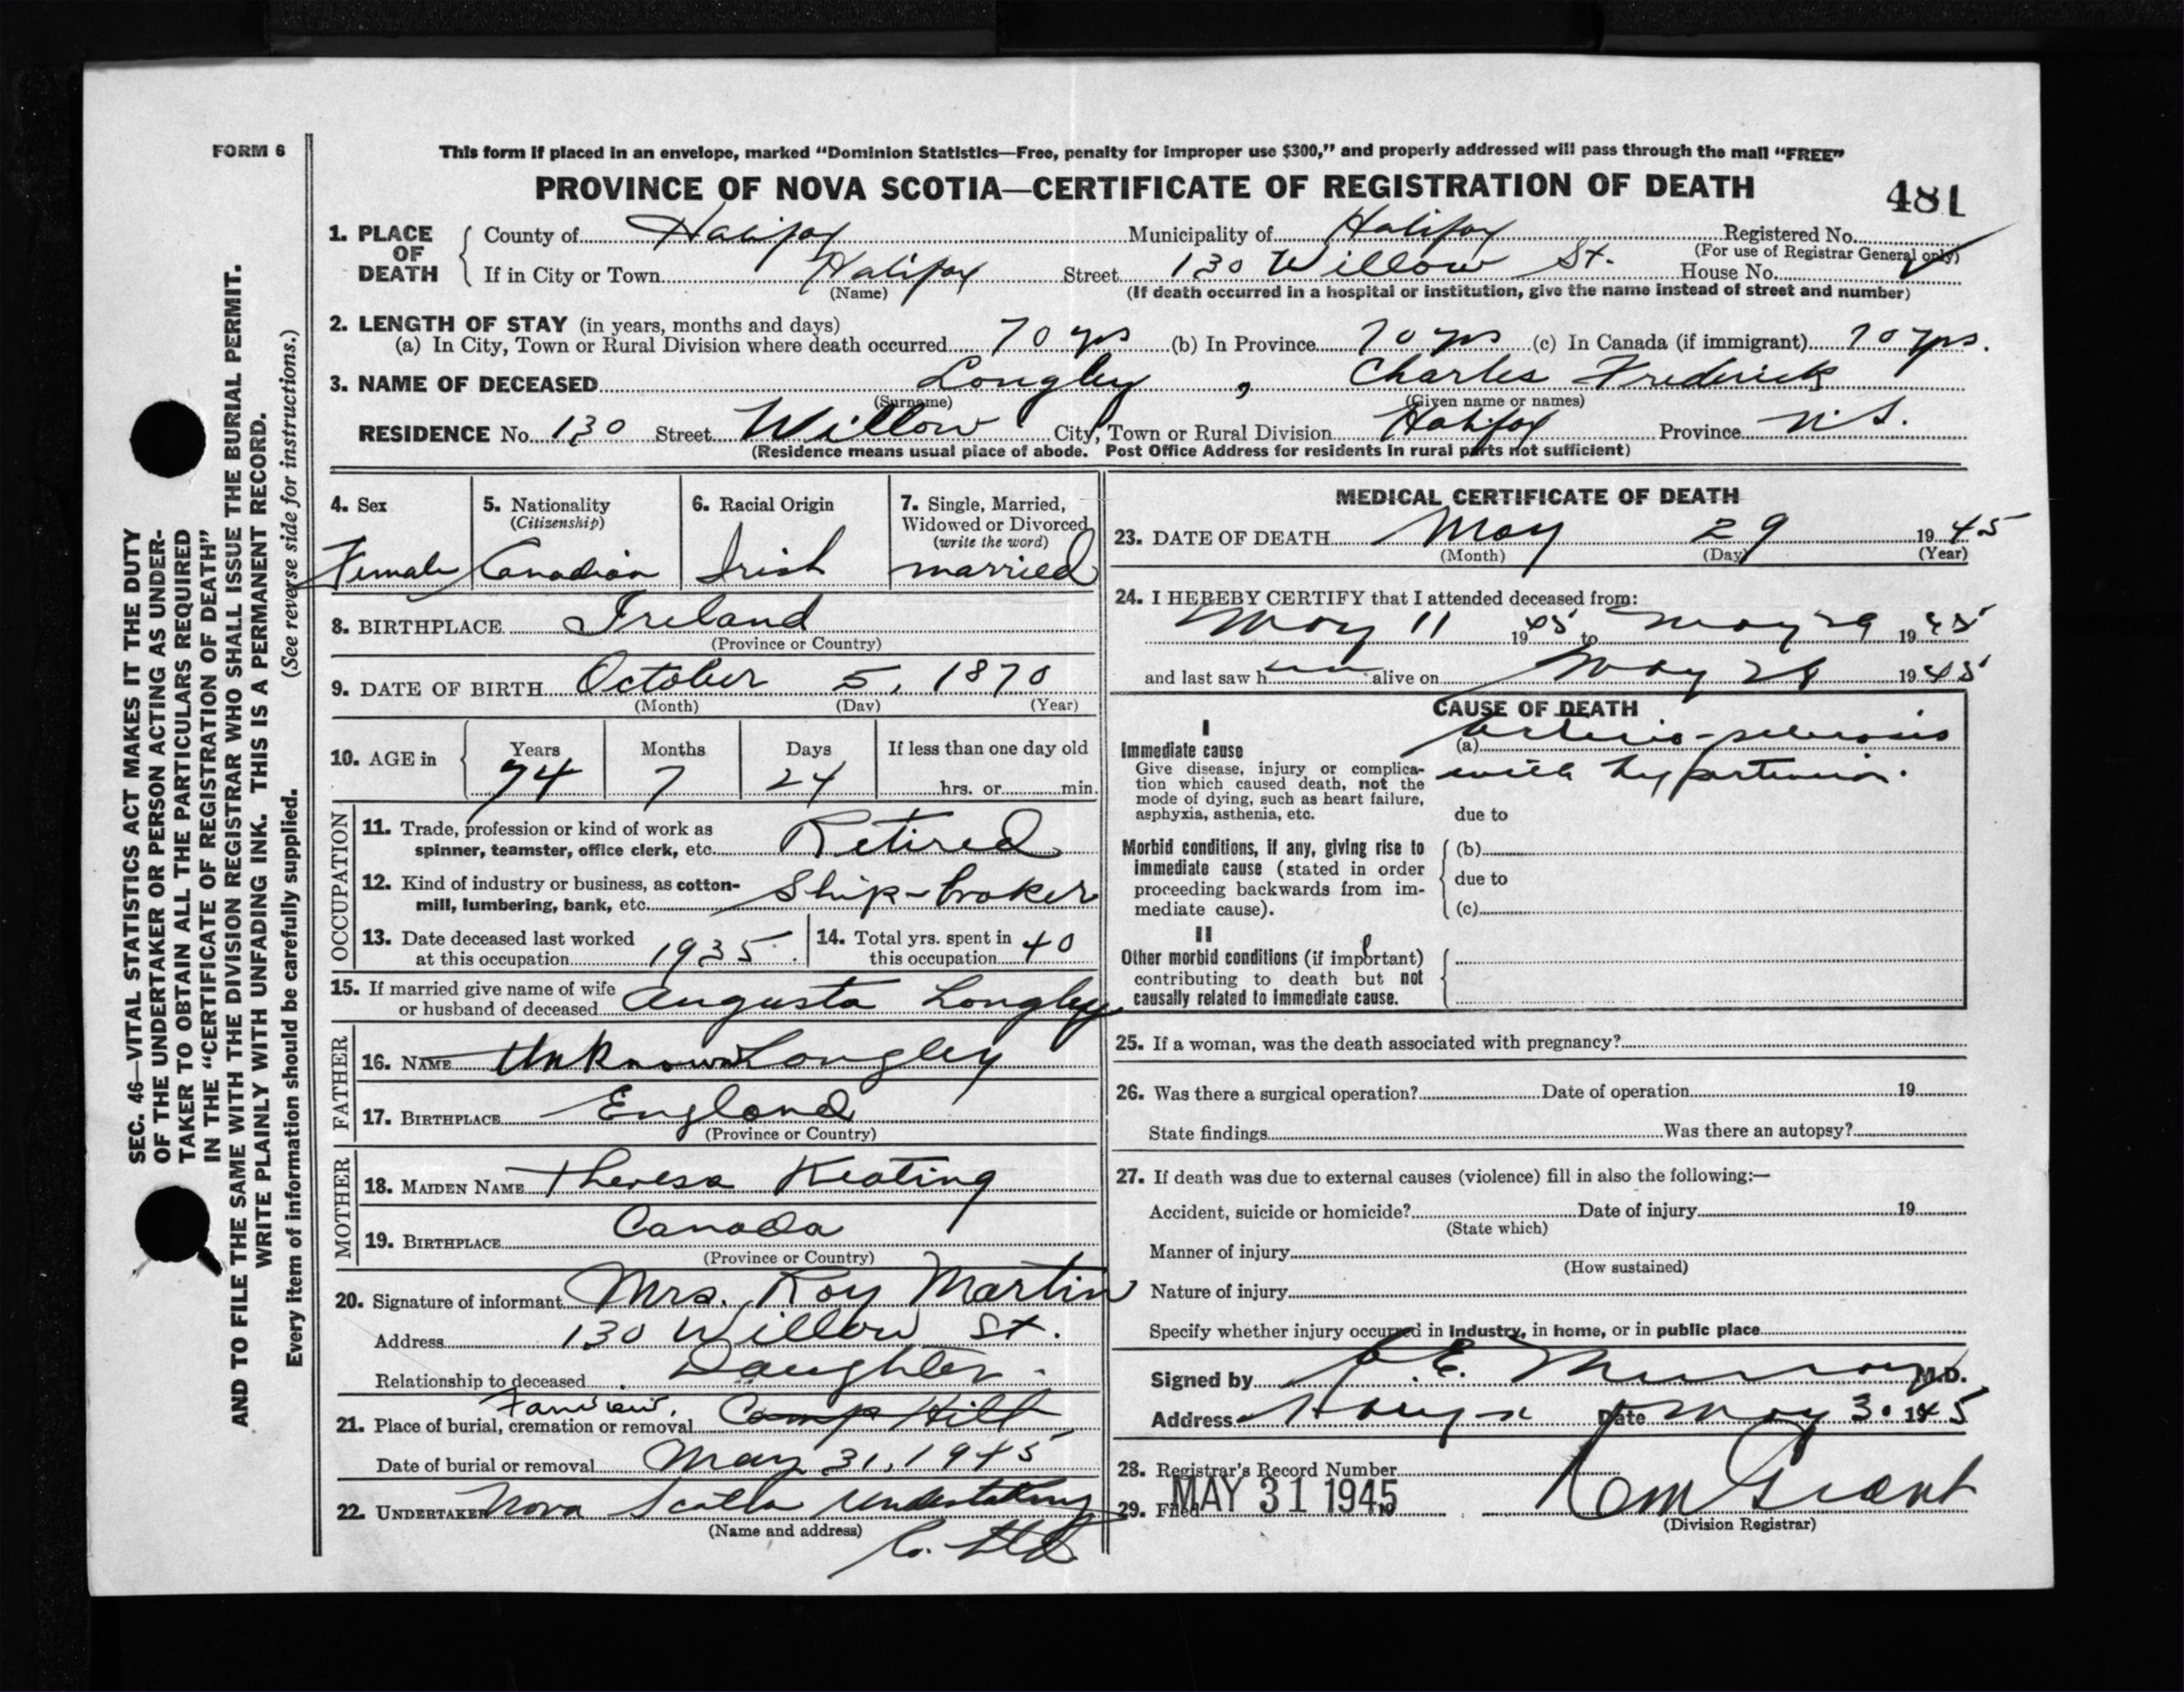 FORM 6
This form if placed in an envelope, marked "Dominion Statistics—Free, penalty for improper use $300," and properly addressed will pass through the mail "FREE"
PROVINCE OF NOVA SCOTIA—CERTIFICATE OF REGISTRATION OF DEATH
481
1. PLACE OF DEATH
County of Halifax Municipality of Halifax Registered No.
(For use of Registrar General only)
If in City or Town Halifax Street 130 Willow St. House No.
(Name) (If death occurred in a hospital or institution, give the name instead of street and number)
2. LENGTH OF STAY (in years, months and days)
(a) In City, Town or Rural Division where death occurred 70 yrs (b) In Province 70 yrs (c) In Canada (if immigrant) 70 yrs.
3. NAME OF DECEASED Longley, Charles Frederick
(Surname) (Given name or names)
RESIDENCE No. 130 Street Willow City, Town or Rural Division Halifax Province N.S.
(Residence means usual place of abode. Post Office Address for residents in rural parts not sufficient)
4. Sex
Female
5. Nationality
(Citizenship)
Canadian
6. Racial Origin
Irish
7. Single, Married,
Widowed or Divorced
(write the word)
married
8. BIRTHPLACE Ireland
(Province or Country)
9. DATE OF BIRTH October 5, 1870
(Month) (Day) (Year)
10. AGE in
Years Months Days If less than one day old
74 7 24 hrs. or min.
OCCUPATION
11. Trade, profession or kind of work as
spinner, teamster, office clerk, etc. Retired
12. Kind of industry or business, as cotton-
mill, lumbering, bank, etc. Ship-broker
13. Date deceased last worked
at this occupation 1935
14. Total yrs. spent in
this occupation 40
15. If married give name of wife
or husband of deceased Augusta Longley
FATHER
16. NAME Unknown Longley
17. BIRTHPLACE England
(Province or Country)
MOTHER
18. MAIDEN NAME Theresa Keating
19. BIRTHPLACE Canada
(Province or Country)
20. Signature of informant Mrs. Roy Martin
Address 130 Willow St.
Relationship to deceased Daughter.
Fairview.
21. Place of burial, cremation or removal Camp Hill
Date of burial or removal May 31, 1945
22. UNDERTAKER Nova Scotia Undertaking
(Name and address)
Co. Ltd
MEDICAL CERTIFICATE OF DEATH
23. DATE OF DEATH May 29 1945
(Month) (Day) (Year)
24. I HEREBY CERTIFY that I attended deceased from:
May 11 1945 to May 29 1945
and last saw h alive on May 28 1945
CAUSE OF DEATH
I
Immediate cause
Give disease, injury or complica-
tion which caused death, not the
mode of dying, such as heart failure,
asphyxia, asthenia, etc.
(a) Arterio-sclerosis
with hypertension.
due to
Morbid conditions, if any, giving rise to
immediate cause (stated in order
proceeding backwards from im-
mediate cause).
(b)
due to
(c)
II
Other morbid conditions (if important)
contributing to death but not
causally related to immediate cause.
25. If a woman, was the death associated with pregnancy?
26. Was there a surgical operation? Date of operation 19
State findings Was there an autopsy?
27. If death was due to external causes (violence) fill in also the following:—
Accident, suicide or homicide? Date of injury 19
(State which)
Manner of injury
(How sustained)
Nature of injury
Specify whether injury occurred in industry, in home, or in public place
Signed by E. Murray M.D.
Address Date May 30 1945
28. Registrar's Record Number
29. Filed MAY 31 1945 19 Grant
(Division Registrar)
SEC. 46—VITAL STATISTICS ACT MAKES IT THE DUTY
OF THE UNDERTAKER OR PERSON ACTING AS UNDER-
TAKER TO OBTAIN ALL THE PARTICULARS REQUIRED
IN THE "CERTIFICATE OF REGISTRATION OF DEATH"
AND TO FILE THE SAME WITH THE DIVISION REGISTRAR WHO SHALL ISSUE THE BURIAL PERMIT.
WRITE PLAINLY WITH UNFADING INK. THIS IS A PERMANENT RECORD.
Every item of information should be carefully supplied. (See reverse side for instructions.)